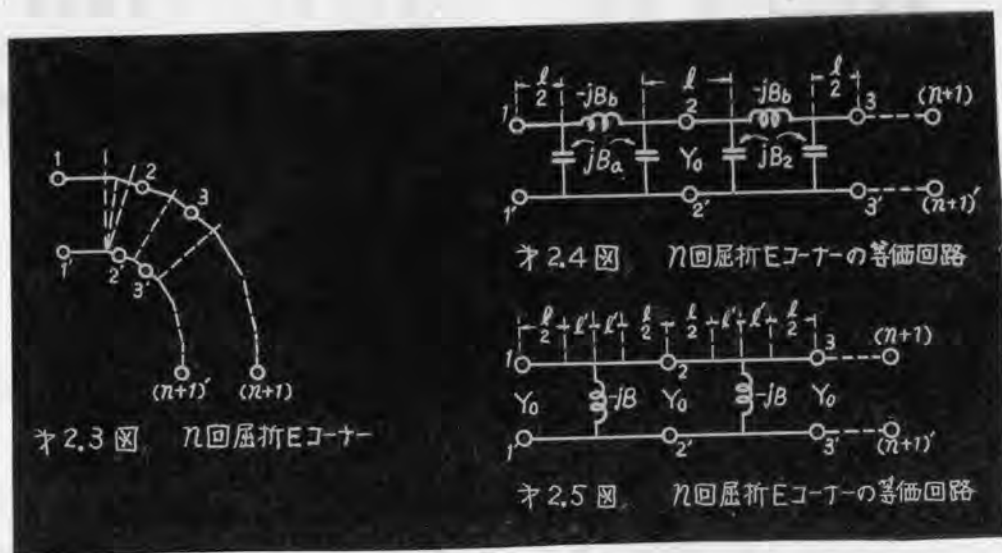 1
2
3
1'
2'
3'
(n+1)'
(n+1)
才2.3図 n回屈折Eコーナー
l/2
l
l/2
1
-jBb
2
-jBb
3
(n+1)
jBa
Y0
jB2
1'
2'
3'
(n+1)'
才2.4図 n回屈折Eコーナーの等価回路
l/2 l' l' l/2 l/2 l' l' l/2
1
2
3
(n+1)
Y0
-jB
Y0
-jB
Y0
1'
2'
3'
(n+1)'
才2.5図 n回屈折Eコーナーの等価回路